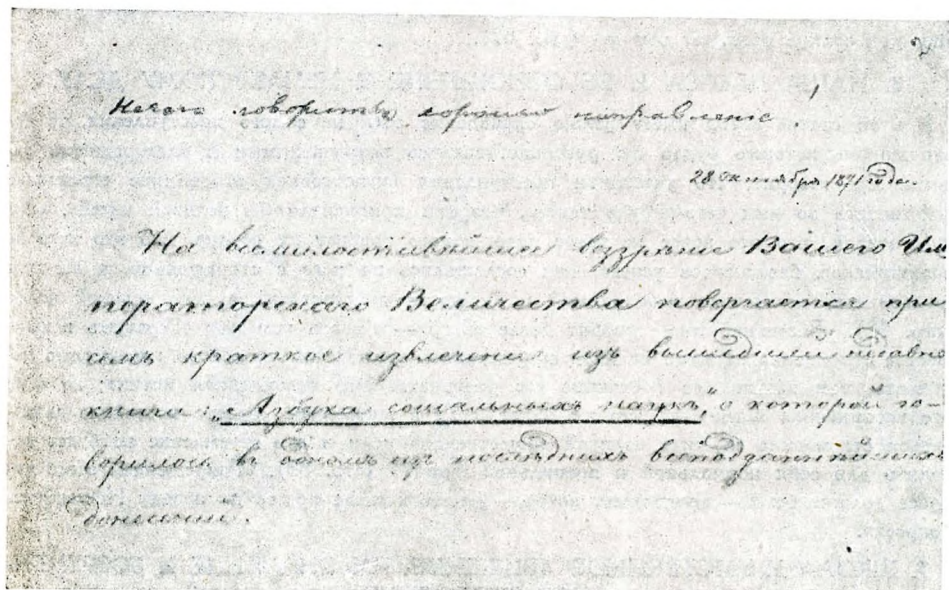 2
Нечего говорить, хорошо направленіе!
28 октября 1871 года.
На всемилостивѣйшее воззрѣніе Вашего Им
ператорскаго Величества повергается при
семъ краткое извлеченіе изъ вышедшей недавно
книги: „Азбука соціальныхъ наукъ“, о которой го-
ворилось въ одномъ изъ послѣднихъ всеподданнѣйшихъ
донесеній.